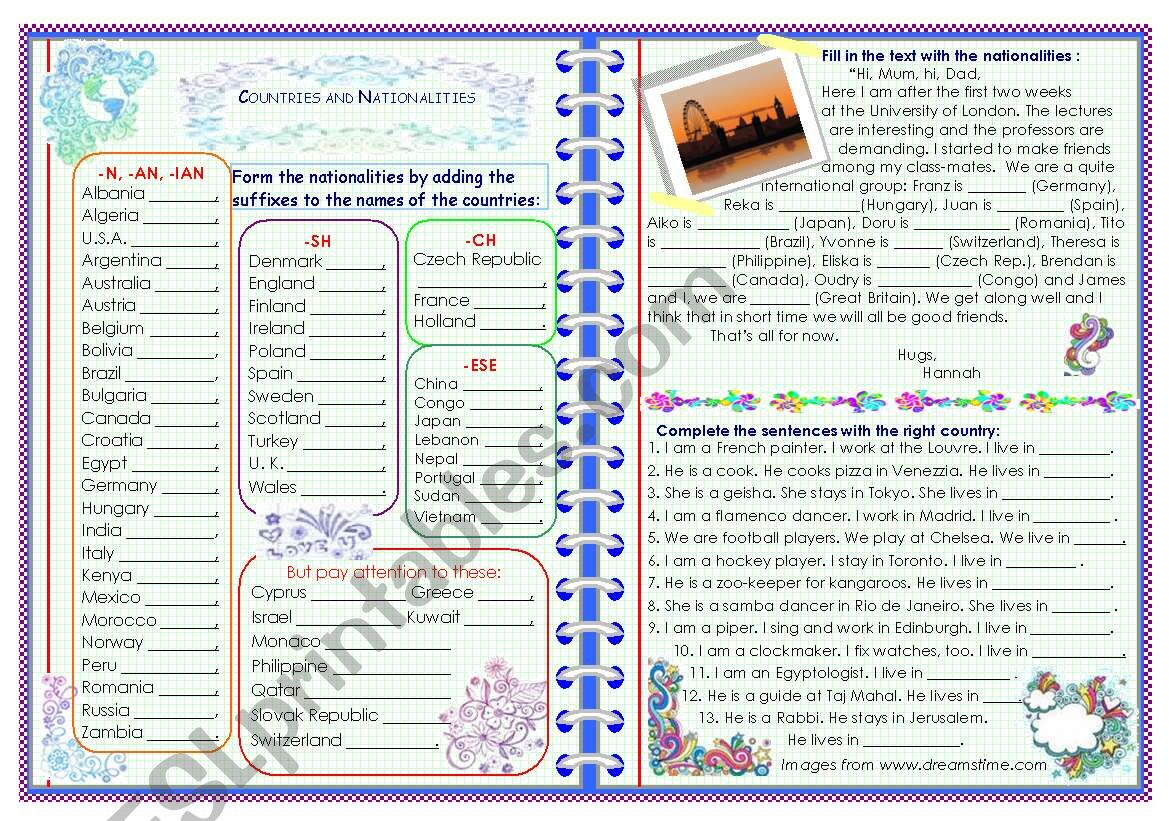 COUNTRIES AND NATIONALITIES
Form the nationalities by adding the
suffixes to the names of the countries:
-N, -AN, -IAN
Albania ________,
Algeria ________,
U.S.A. _________,
Argentina ______,
Australia _______,
Austria _______,
Belgium _______,
Bolivia _________,
Brazil __________,
Bulgaria _______,
Canada _______,
Croatia _______,
Egypt _________,
Germany ______,
Hungary _______,
India __________,
Italy ___________,
Kenya _________,
Mexico ________,
Morocco ______,
Norway _______,
Peru __________,
Romania ______,
Russia _________,
Zambia ________.
-SH
Denmark ______,
England _______,
Finland ________,
Ireland ________,
Poland ________,
Spain _________,
Sweden _______,
Scotland ______,
Turkey ________,
U. K. __________,
Wales _________.
-CH
Czech Republic
______________,
France ________,
Holland _______.
-ESE
China _________,
Congo ________,
Japan ________,
Lebanon ______,
Nepal _________,
Portugal _______,
Sudan ________,
Vietnam _______.
But pay attention to these:
Cyprus __________, Greece ______,
Israel __________, Kuwait ________,
Monaco ______________
Philippine ______________
Qatar ________________
Slovak Republic ________
Switzerland __________.
Fill in the text with the nationalities :
“Hi, Mum, hi, Dad,
Here I am after the first two weeks
at the University of London. The lectures
are interesting and the professors are
demanding. I started to make friends
among my class-mates. We are a quite
international group: Franz is _______ (Germany),
Reka is __________(Hungary), Juan is ________ (Spain),
Aiko is ___________ (Japan), Doru is ___________ (Romania), Tito
is _____________ (Brazil), Yvonne is ______ (Switzerland), Theresa is
__________ (Philippine), Eliska is _______ (Czech Rep.), Brendan is
__________ (Canada), Oudry is ______________ (Congo) and James
and I, we are ________ (Great Britain). We get along well and I
think that in short time we will all be good friends.
That’s all for now.
Hugs,
Hannah
Complete the sentences with the right country:
1. I am a French painter. I work at the Louvre. I live in _________.
2. He is a cook. He cooks pizza in Venezzia. He lives in ________.
3. She is a geisha. She stays in Tokyo. She lives in _____________.
4. I am a flamenco dancer. I work in Madrid. I live in _________ .
5. We are football players. We play at Chelsea. We live in ______.
6. I am a hockey player. I stay in Toronto. I live in _________ .
7. He is a zoo-keeper for kangaroos. He lives in ______________.
8. She is a samba dancer in Rio de Janeiro. She lives in _______ .
9. I am a piper. I sing and work in Edinburgh. I live in __________.
10. I am a clockmaker. I fix watches, too. I live in ___________.
11. I am an Egyptologist. I live in __________ .
12. He is a guide at Taj Mahal. He lives in _____.
13. He is a Rabbi. He stays in Jerusalem.
He lives in ____________.
Images from www.dreamstime.com
ESLprintables.com